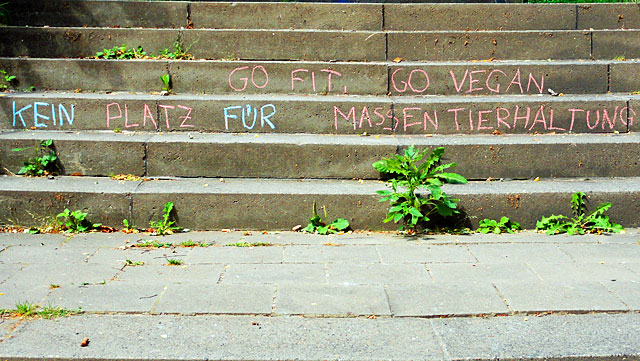 GO FIT, GO VEGAN
KEIN PLATZ FÜR MASSENTIERHALTUNG